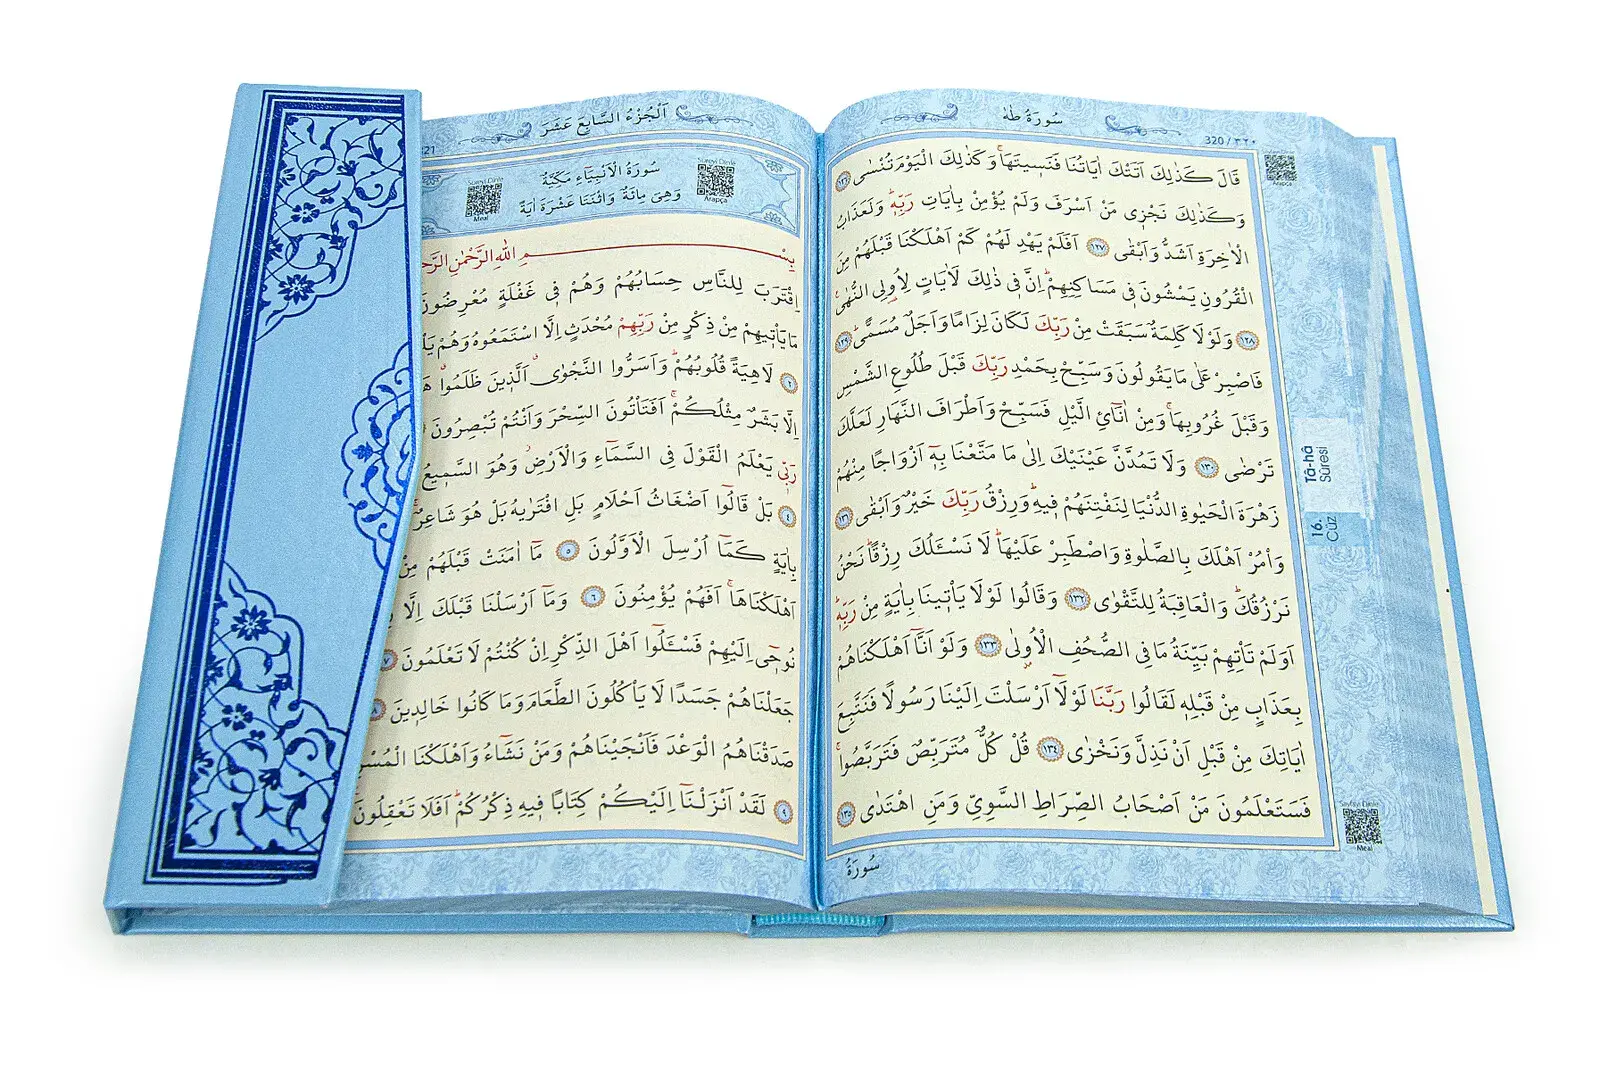 سُورَةُ طٰهٰ
320 / ٣٢٠
Arapça
قَالَ كَذٰلِكَ اَتَتْكَ اٰيَاتُنَا فَنَسٖيتَهَاۚ وَكَذٰلِكَ الْيَوْمَ تُنْسٰى ﴿١٢٦﴾
وَكَذٰلِكَ نَجْزٖى مَنْ اَسْرَفَ وَلَمْ يُؤْمِنْ بِاٰيَاتِ رَبِّهٖؕ وَلَعَذَابُ
الْاٰخِرَةِ اَشَدُّ وَاَبْقٰى ﴿١٢٧﴾ اَفَلَمْ يَهْدِ لَهُمْ كَمْ اَهْلَكْنَا قَبْلَهُمْ مِنَ
الْقُرُونِ يَمْشُونَ فٖى مَسَاكِنِهِمْؕ اِنَّ فٖى ذٰلِكَ لَاٰيَاتٍ لِاُولِى النُّهٰى
﴿١٢٨﴾ وَلَوْلَا كَلِمَةٌ سَبَقَتْ مِنْ رَبِّكَ لَكَانَ لِزَامًا وَاَجَلٌ مُسَمًّىؕ ﴿١٢٩﴾
فَاصْبِرْ عَلٰى مَا يَقُولُونَ وَسَبِّحْ بِحَمْدِ رَبِّكَ قَبْلَ طُلُوعِ الشَّمْسِ
وَقَبْلَ غُرُوبِهَاۚ وَمِنْ اٰنَآئِ الَّيْلِ فَسَبِّحْ وَاَطْرَافَ النَّهَارِ لَعَلَّكَ
تَرْضٰى ﴿١٣٠﴾ وَلَا تَمُدَّنَّ عَيْنَيْكَ اِلٰى مَا مَتَّعْنَا بِهٖٓ اَزْوَاجًا مِنْهُمْ
زَهْرَةَ الْحَيٰوةِ الدُّنْيَا لِنَفْتِنَهُمْ فٖيهِؕ وَرِزْقُ رَبِّكَ خَيْرٌ وَاَبْقٰى ﴿١٣١﴾
وَاْمُرْ اَهْلَكَ بِالصَّلٰوةِ وَاصْطَبِرْ عَلَيْهَاؕ لَا نَسْـَٔلُكَ رِزْقًاؕ نَحْنُ
نَرْزُقُكَؕ وَالْعَاقِبَةُ لِلتَّقْوٰى ﴿١٣٢﴾ وَقَالُوا لَوْلَا يَاْتٖينَا بِاٰيَةٍ مِنْ رَبِّهٖؕ
اَوَلَمْ تَاْتِهِمْ بَيِّنَةُ مَا فِى الصُّحُفِ الْاُولٰى ﴿١٣٣﴾ وَلَوْ اَنَّٓا اَهْلَكْنَاهُمْ
بِعَذَابٍ مِنْ قَبْلِهٖ لَقَالُوا رَبَّنَا لَوْلَٓا اَرْسَلْتَ اِلَيْنَا رَسُولًا فَنَتَّبِعَ
اٰيَاتِكَ مِنْ قَبْلِ اَنْ نَذِلَّ وَنَخْزٰى ﴿١٣٤﴾ قُلْ كُلٌّ مُتَرَبِّصٌ فَتَرَبَّصُواۚ
فَسَتَعْلَمُونَ مَنْ اَصْحَابُ الصِّرَاطِ السَّوِىِّ وَمَنِ اهْتَدٰى ﴿١٣٥﴾
سُورَةُ
Tâ-hâ
Sûresi
16.
Cüz
Sayfayı Dinle
Meal
اَلْجُزْءُ السَّابِعَ عَشَرَ
Sureyi Dinle
Arapça
سُورَةُ الْاَنْبِيَٓاءِ مَكِّيَّةٌ
وَهِىَ مِائَةٌ وَاثْنَتَا عَشْرَةَ اٰيَةً
Sureyi Dinle
Meal
بِسْمِ اللّٰهِ الرَّحْمٰنِ
اِقْتَرَبَ لِلنَّاسِ حِسَابُهُمْ وَهُمْ فٖى غَفْلَةٍ مُعْرِضُونَ
مَا يَاْتٖيهِمْ مِنْ ذِكْرٍ مِنْ رَبِّهِمْ مُحْدَثٍ اِلَّا اسْتَمَعُوهُ وَهُمْ
﴿٢﴾ لَاهِيَةً قُلُوبُهُمْؕ وَاَسَرُّوا النَّجْوٰى اَلَّذٖينَ ظَلَمُوا
اِلَّا بَشَرٌ مِثْلُكُمْۚ اَفَتَاْتُونَ السِّحْرَ وَاَنْتُمْ تُبْصِرُونَ
رَبّٖى يَعْلَمُ الْقَوْلَ فِى السَّمَٓاءِ وَالْاَرْضِؗ وَهُوَ السَّمٖيعُ
﴿٤﴾ بَلْ قَالُٓوا اَضْغَاثُ اَحْلَامٍ بَلِ افْتَرٰيهُ بَلْ هُوَ شَاعِرٌۚ
بِاٰيَةٍ كَمَٓا اُرْسِلَ الْاَوَّلُونَ ﴿٥﴾ مَٓا اٰمَنَتْ قَبْلَهُمْ مِنْ
اَهْلَكْنَاهَاۚ اَفَهُمْ يُؤْمِنُونَ ﴿٦﴾ وَمَٓا اَرْسَلْنَا قَبْلَكَ اِلَّا
نُوحٖٓى اِلَيْهِمْ فَسْـَٔلُٓوا اَهْلَ الذِّكْرِ اِنْ كُنْتُمْ لَا تَعْلَمُونَ ﴿٧﴾
جَعَلْنَاهُمْ جَسَدًا لَا يَاْكُلُونَ الطَّعَامَ وَمَا كَانُوا خَالِدٖينَ ﴿٨﴾
صَدَقْنَاهُمُ الْوَعْدَ فَاَنْجَيْنَاهُمْ وَمَنْ نَشَٓاءُ وَاَهْلَكْنَا
﴿٩﴾ لَقَدْ اَنْزَلْنَٓا اِلَيْكُمْ كِتَابًا فٖيهِ ذِكْرُكُمْؕ اَفَلَا تَعْقِلُونَ